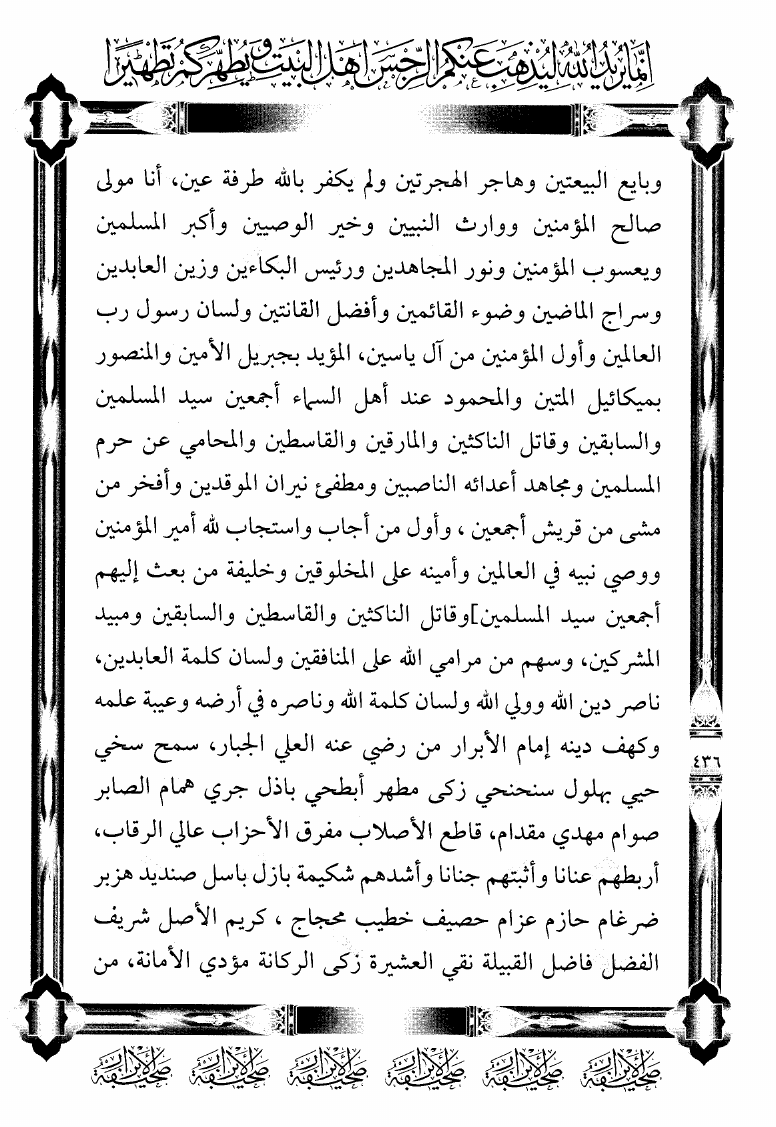 إنما يريد الله ليذهب عنكم الرجس أهل البيت ويطهركم تطهيرا
وبايع البيعتين وهاجر الهجرتين ولم يكفر بالله طرفة عين، أنا مولى
صالح المؤمنين ووارث النبيين وخير الوصيين وأكبر المسلمين
ويعسوب المؤمنين ونور المجاهدين ورئيس البكاءين وزين العابدين
وسراج الماضين وضوء القائمين وأفضل القانتين ولسان رسول رب
العالمين وأول المؤمنين من آل ياسين، المؤيد بجبريل الأمين والمنصور
بميكائيل المتين والمحمود عند أهل السماء أجمعين سيد المسلمين
والسابقين وقاتل الناكثين والمارقين والقاسطين والمحامي عن حرم
المسلمين ومجاهد أعدائه الناصبين ومطفئ نيران الموقدين وأفخر من
مشى من قريش أجمعين ، وأول من أجاب واستجاب لله أمير المؤمنين
ووصي نبيه في العالمين وأمينه على المخلوقين وخليفة من بعث إليهم
أجمعين سيد المسلمين]وقاتل الناكثين والقاسطين والسابقين ومبيد
المشركين، وسهم من مرامي الله على المنافقين ولسان كلمة العابدين،
ناصر دين الله وولي الله ولسان كلمة الله وناصره في أرضه وعيبة علمه
وكهف دينه إمام الأبرار من رضي عنه العلي الجبار، سمح سخي
حيي بهلول سنحنحي زكى مطهر أبطحي باذل جري همام الصابر
صوام مهدي مقدام، قاطع الأصلاب مفرق الأحزاب عالي الرقاب،
أربطهم عنانا وأثبتهم جنانا وأشدهم شكيمة بازل باسل صنديد هزبر
ضرغام حازم عزام حصيف خطيب محجاج ، كريم الأصل شريف
الفضل فاضل القبيلة نقي العشيرة زكى الركانة مؤدي الأمانة، من
٤٣٦
صحيفة الأبرار صحيفة الأبرار صحيفة الأبرار صحيفة الأبرار صحيفة الأبرار صحيفة الأبرار